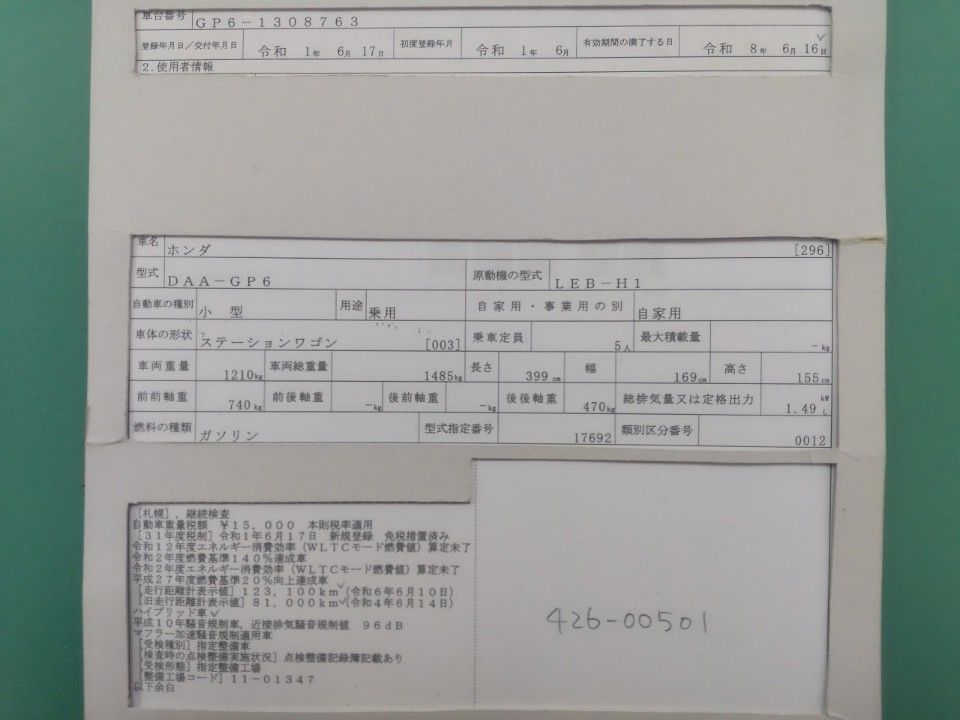 車台番号 GP6-1308763
登録年月日/交付年月日 令和 1年 6月 17日 初度登録年月 令和 1年 6月 有効期間の満了する日 令和 8年 6月 16日
2.使用者情報
車名 ホンダ [296]
型式 DAA-GP6 原動機の型式 LEB-H1
自動車の種別 小型 用途 乗用 自家用・事業用の別 自家用
車体の形状 ステーションワゴン [003] 乗車定員 5人 最大積載量 -kg
車両重量 1210kg 車両総重量 1485kg 長さ 399cm 幅 169cm 高さ 155cm
前前軸重 740kg 前後軸重 -kg 後前軸重 -kg 後後軸重 470kg 総排気量又は定格出力 1.49 kW L
燃料の種類 ガソリン 型式指定番号 17692 類別区分番号 0012
[札幌],継続検査
自動車重量税額 ¥15,000 本則税率適用
[31年度税制]令和1年6月17日 新規登録 免税措置済み
令和12年度エネルギー消費効率(WLTCモード燃費値)算定未了
令和2年度燃費基準140%達成車
令和2年度エネルギー消費効率(WLTCモード燃費値)算定未了
平成27年度燃費基準20%向上達成車
[走行距離計表示値]123,100km(令和6年6月10日)
[旧走行距離計表示値]81,000km(令和4年6月14日)
ハイブリッド車
平成10年騒音規制車,近接排気騒音規制値 96dB
マフラー加速騒音規制適用車
[受検種別]指定整備車
[検査時の点検整備実施状況]点検整備記録簿記載あり
[受検形態]指定整備工場
[整備工場コード]11-01347
以下余白
426-00501